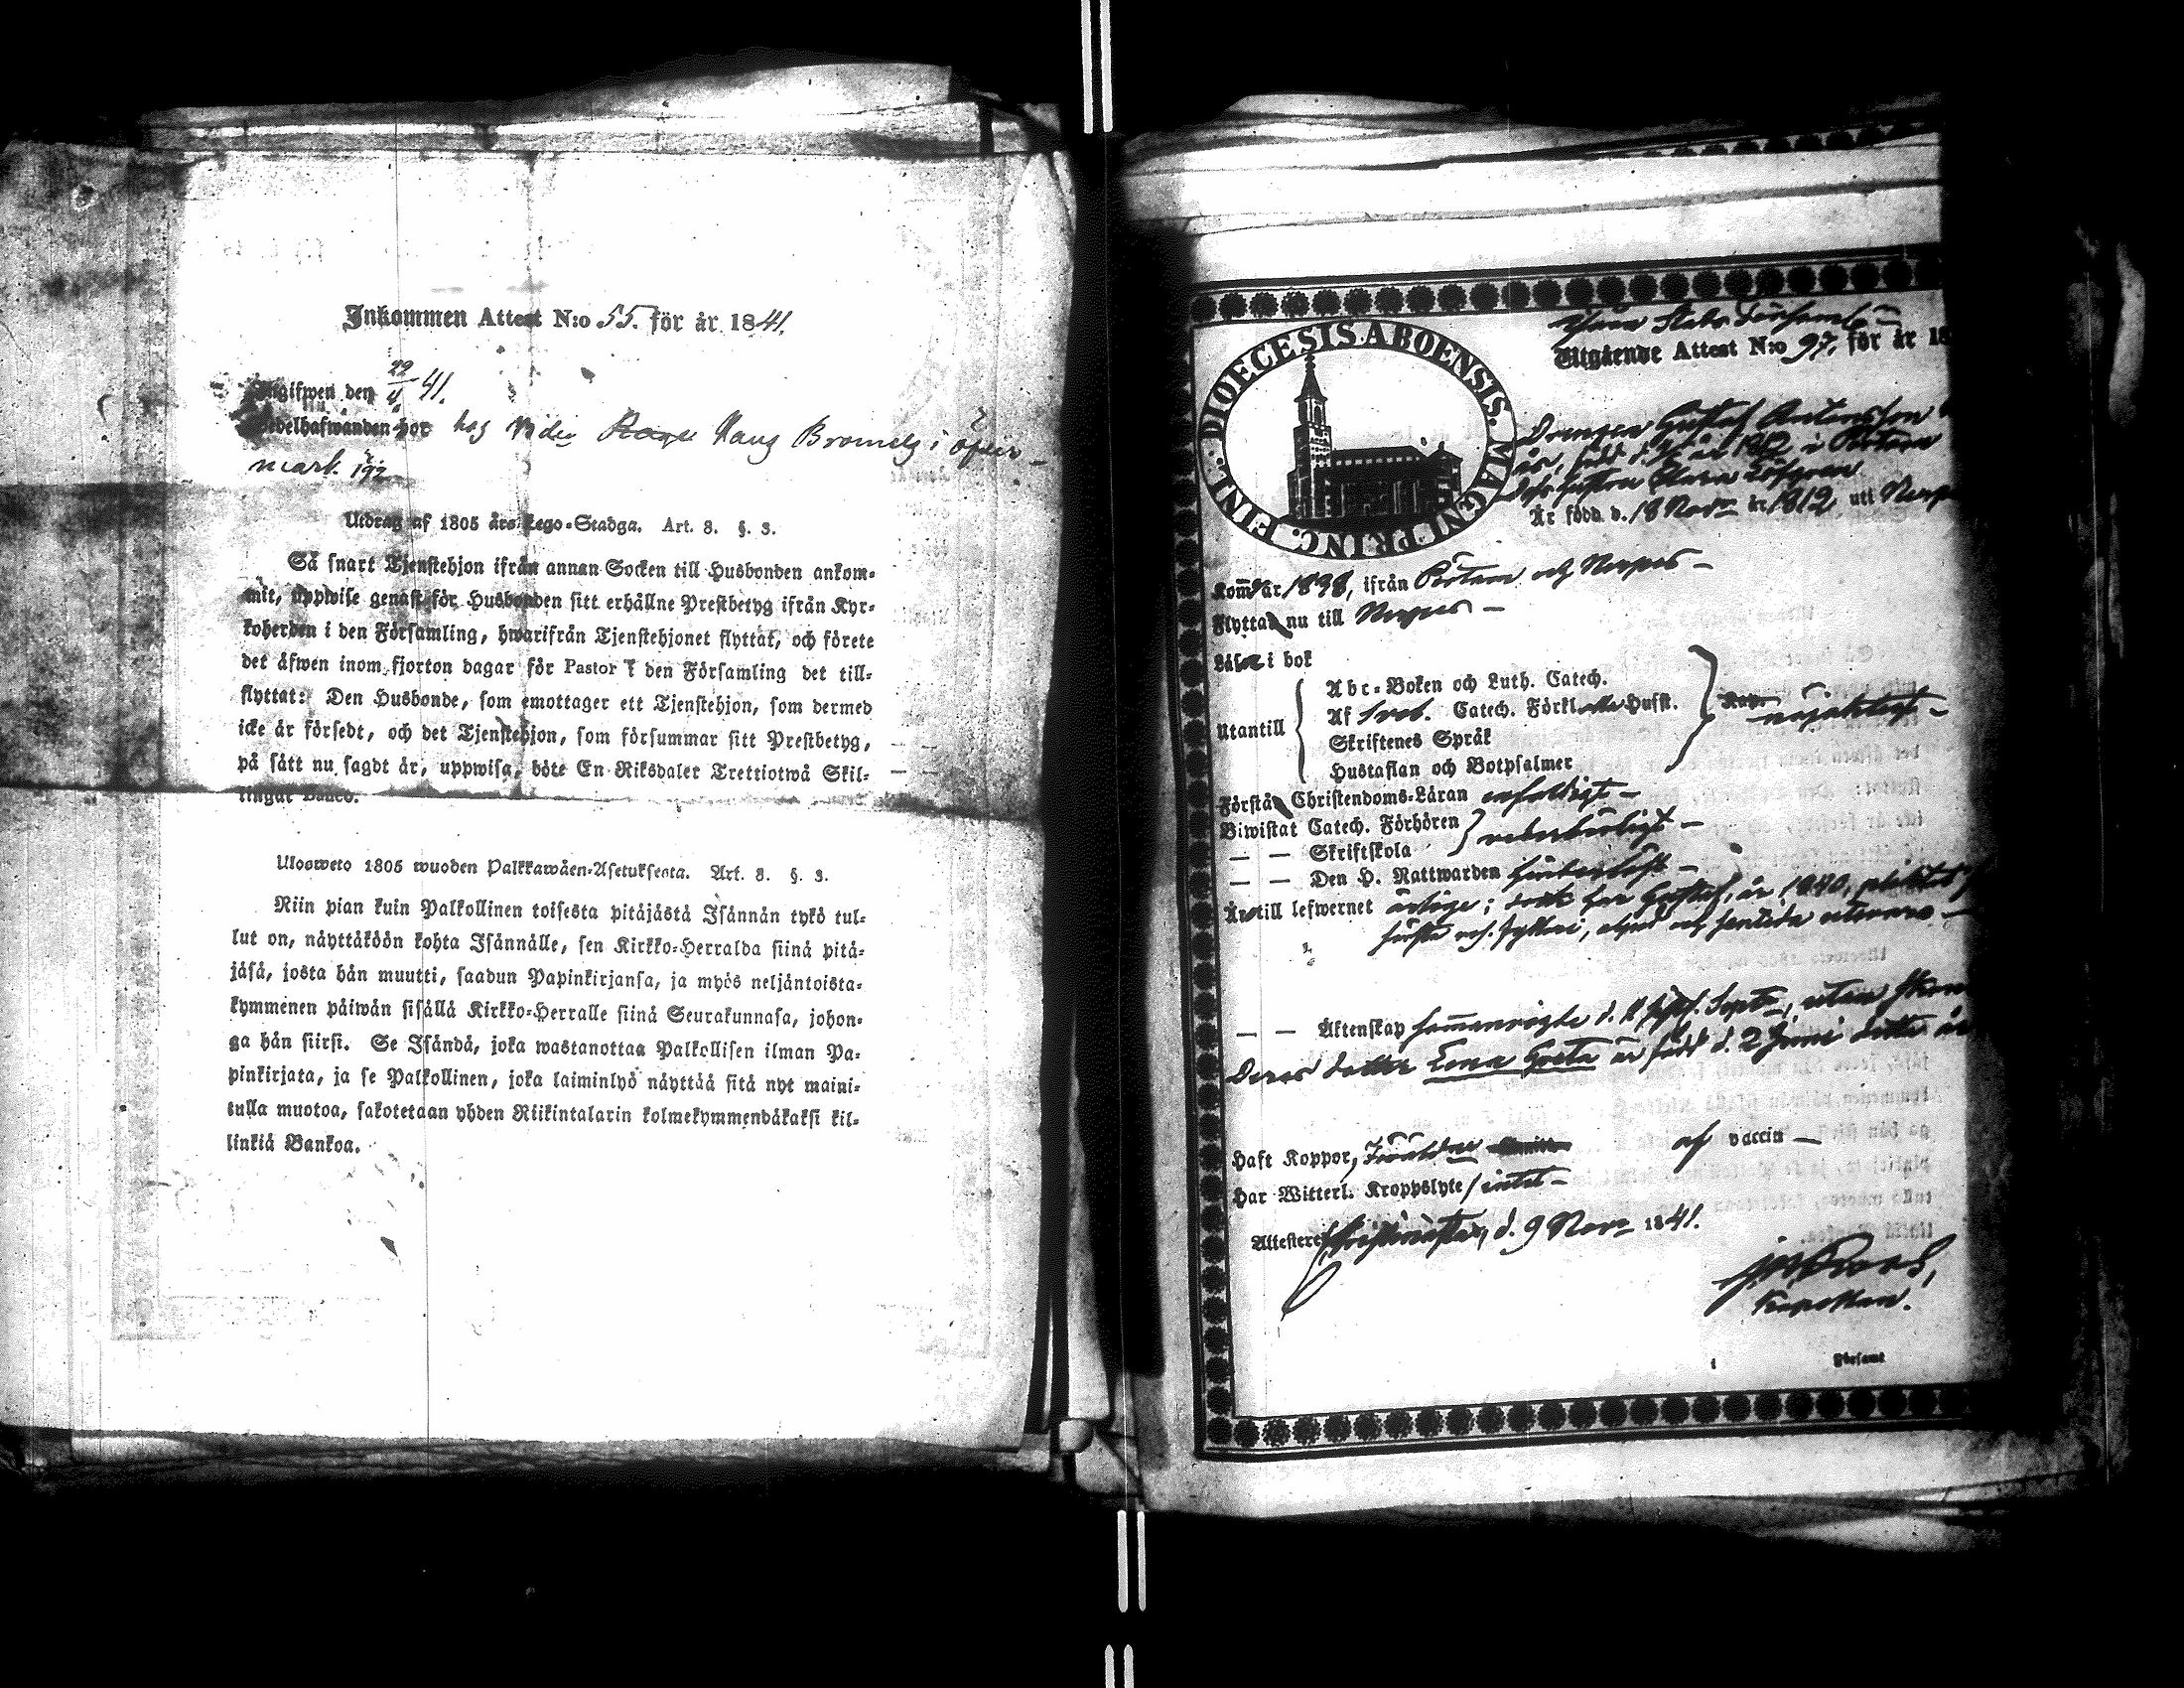 Inkommen Attest N:o 55. för år 1841.
Utgifwen den 22/4 41.
Bedelhafwanden bor hos Hans i Öfver-
mark 192
Utdrag af 1805 års Lego-Stadga. Art. 8. §. 3.
Så snart Tjenstehjon ifrån annan Socken till Husbonden ankom-
mit, uppwise genast för Husbonden sitt erhållne Prestbetyg ifrån Kyr-
koherden i den Församling, hwarifrån Tjenstehjonet flyttat, och förete
det åfwen inom fjorton dagar för Pastor i den Församling det till-
flyttat: Den Husbonde, som emottager ett Tjenstehjon, som dermed
icke år försedt, och det Tjenstehjon, som försummar sitt Prestbetyg,
på sått nu sagdt år, uppwisa, böte En Riksdaler Trettiotwå Skil-
lingar Banco.
Ulosweto 1805 wuoden Palkkawåen-Asetuksesta. Art. 8. §. 3.
Niin pian kuin Palkollinen toisesta pitåjåstå Isånnån tykö tul-
lut on, nåyttåköön kohta Isånnålle, sen Kirkko-Herralda siinå pitå-
jåså, josta hån muutti, saadun Papinkirjansa, ja myös neljåntoista-
kymmenen påiwån sisållå Kirkko-Herralle siinå Seurakunnasa, johon-
ga hån siirsi. Se Isåndå, joka wastanottaa Palkollisen ilman Pa-
pinkirjata, ja se Palkollinen, joka laiminlyö nåyttåå sitå nyt maini-
tulla muotoa, sakotetaan yhden Riikintalarin kolmekymmendåkaksi kil-
linkiå Bankoa.
DIOECESIS ABOENSIS. MAGNI PRINC. FINL.
Utgående Attest N:o 97. för år 18
Drengen Gustaf
född d. år 1812 i Pörtom
hustru Clara Löfgren
År född d. 18 Nov år 1812 uti Nerpes
Kom år 1838, ifrån Pörtom och Nerpes
Flyttar nu till Nerpes
Låser i bok
Utantill
Abc-Boken och Luth. Catech.
Af Sveb. Catech. Förkl. Husst.
Skriftenes Språk
Hustaflan och Botpsalmer
nöjaktigt
Förstår Christendoms-Låran enfaldigt
Biwistat Catech. Förhören
— — Skriftskola
vederbörligt
— — Den H. Nattwarden
Åro till lefwernet ärlige; dock har Gustaf, år 1840, pliktat för
första och
— — Åktenskap sammanvigde d. Sept., utan
Deras dotter Lena Greta är född d. 2 Juni detta år
Haft Koppor, Föräldrarne af vaccin
Har Witterl. Kroppslyte intet
Attesterar Christinestad, d. 9 Nov 1841.
Kapellan.
Församl